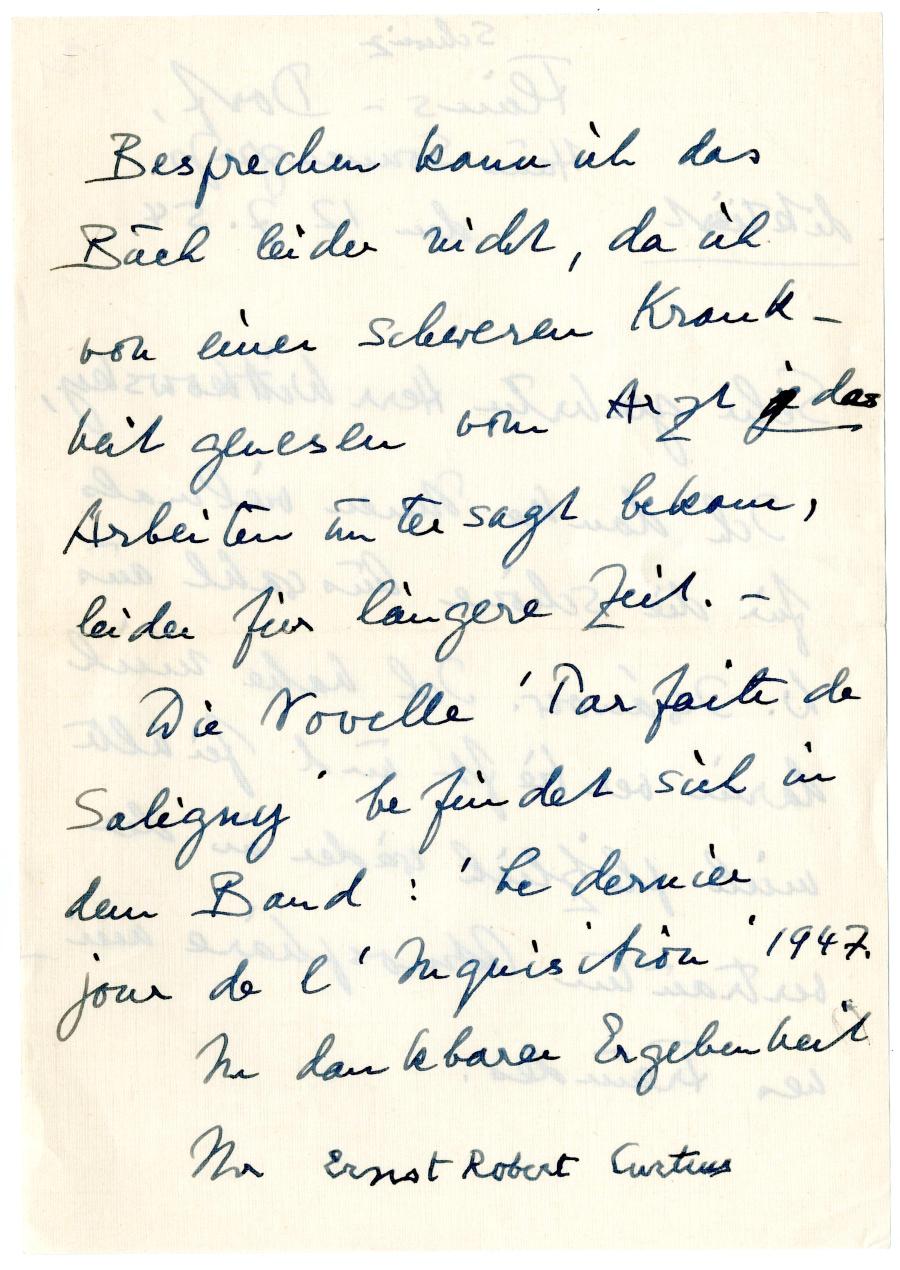 Besprechen kann ich das
Buch leider nicht, da ich
von einer schweren Krank-
heit genesen vom Arzt das
Arbeiten untersagt bekam,
leider für längere Zeit. –
Die Novelle 'Parfaite de
Saligny' befindet sich in
dem Band : 'Le dernier
jour de l'Inquisition' 1947.
In dankbarer Ergebenheit
Ihr Ernst Robert Curtius